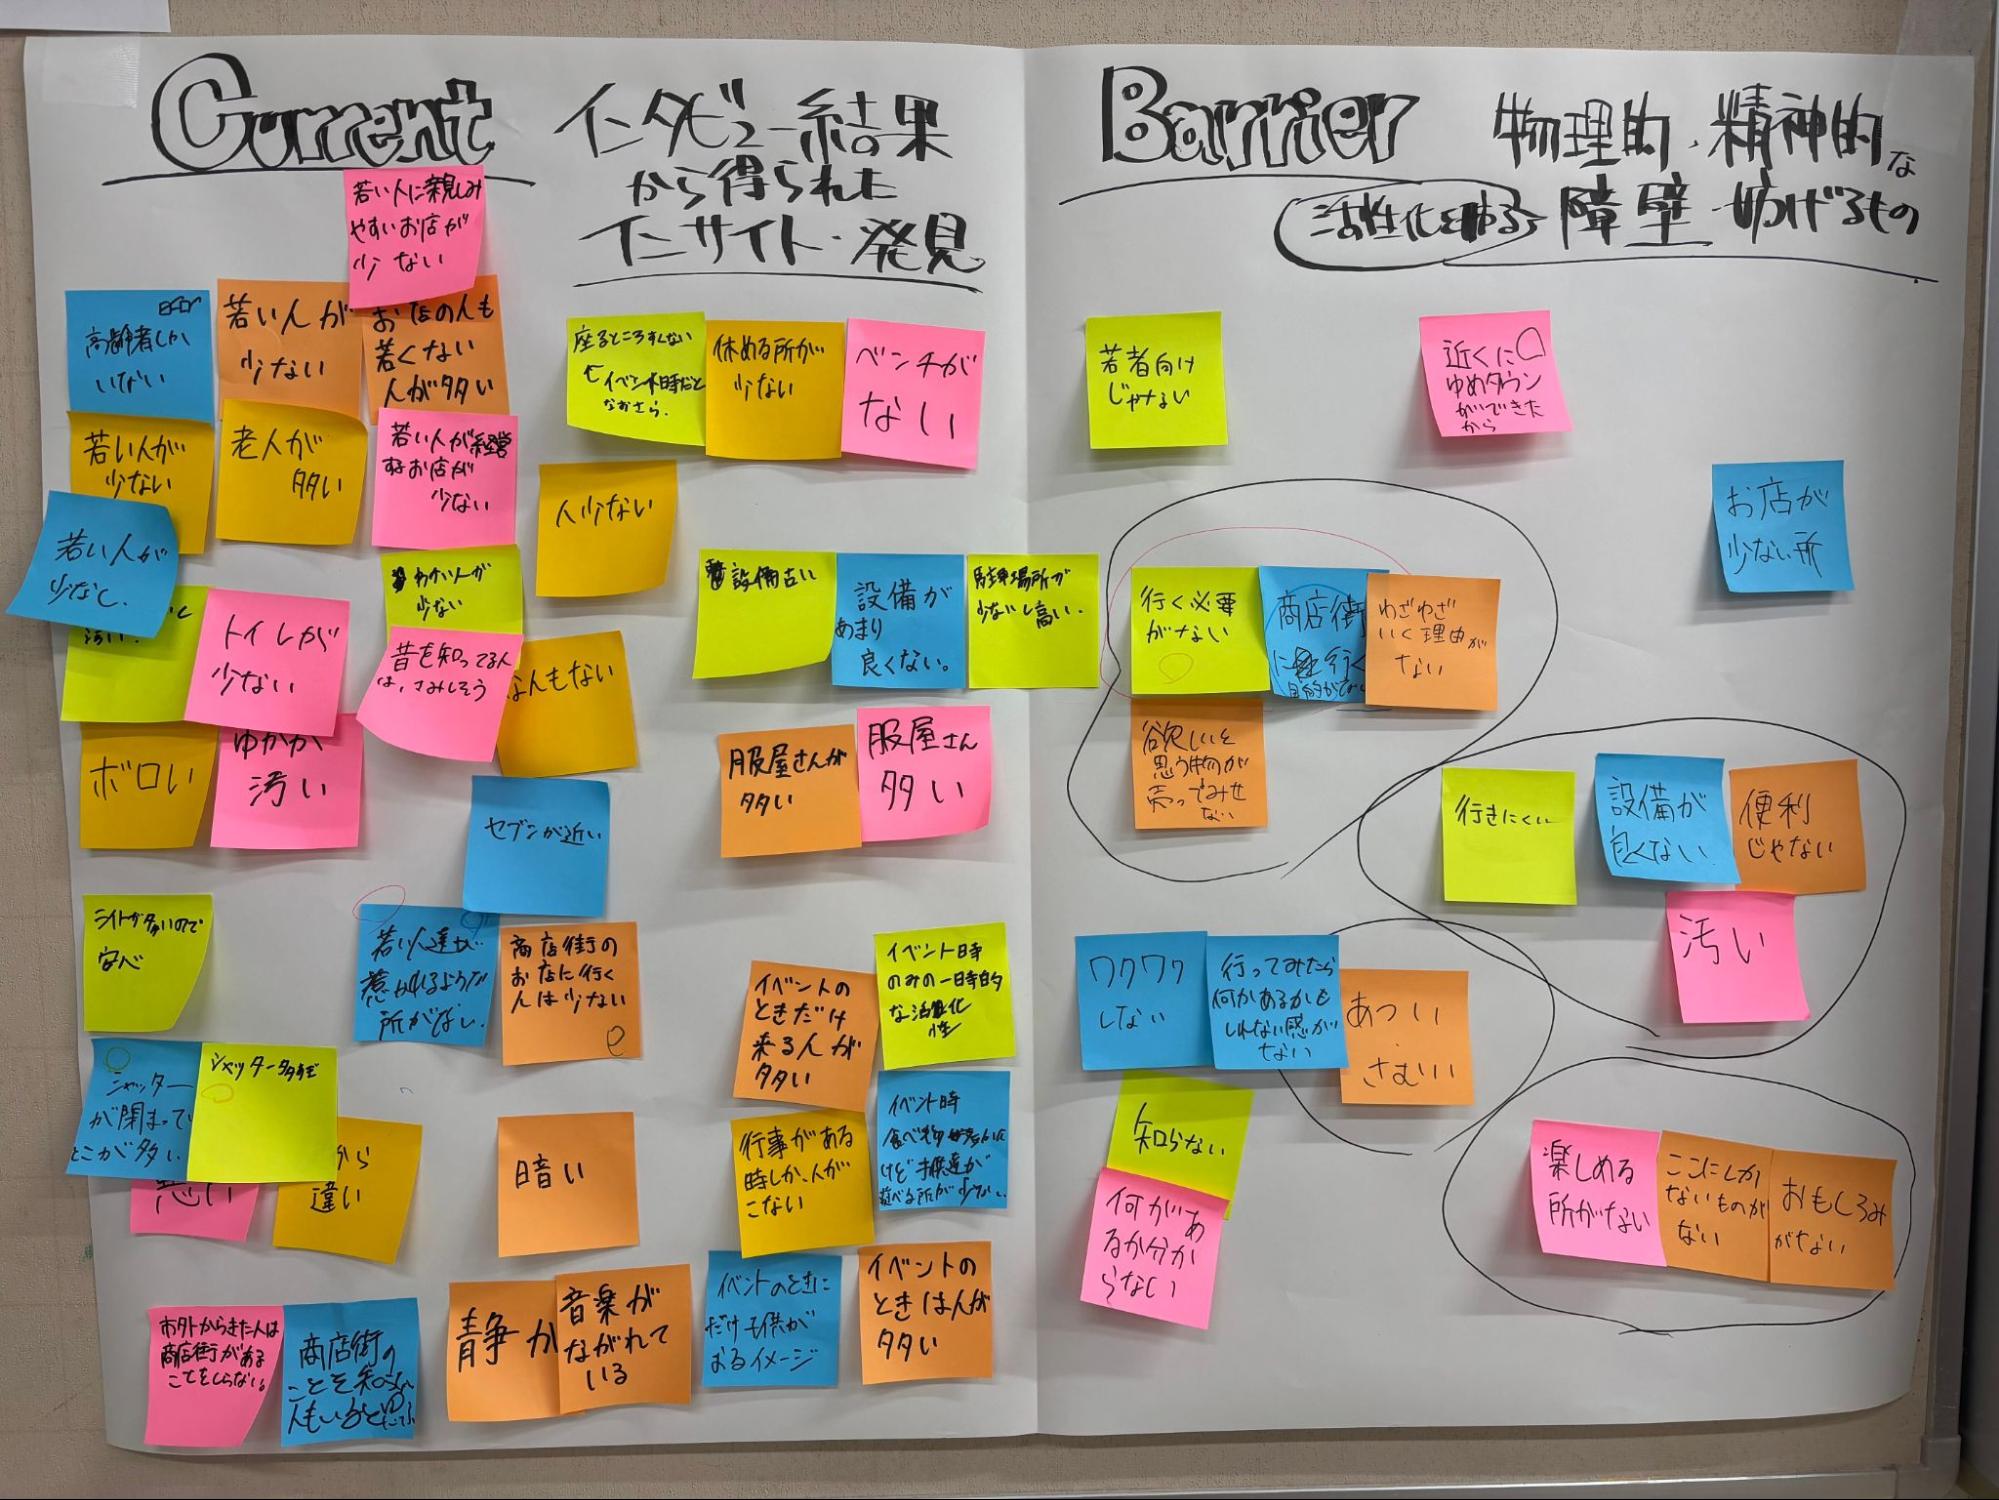 Current
インタビュー結果
から得られた
インサイト・発見
若い人に親しみ
やすいお店が
少ない
高齢者しか
いない
若い人が
少ない
お店の人も
若くない
人が多い
若い人が
少ない
老人が
多い
若い人が経営
するお店が
少ない
若い人が
少なし.
わかい人が
少ない
汚い.
トイレが
少ない
昔を知ってる人
は、さみしそう
なんもない
ボロい
ゆかが
汚い
セブンが近い
座るところすくない
イベント時だと
なおさら.
休める所が
少ない
ベンチが
ない
人少ない
設備古い
設備が
あまり
良くない。
駐車場所が
少ないし高い.
服屋さんが
多い
服屋さん
多い
ライトが多いので
安心
若い人達が
惹かれるような
所がない.
商店街の
お店に行く
人は少ない
シャッター
が閉まって
とこが多い.
シャッター多すぎ
悪い
から
違い
暗い
イベントの
ときだけ
来る人が
多い
イベント時
のみの一時的
な活性化
行事がある
時しか、人が
こない
イベント時
けど
市外からきた人は
商店街がある
ことをしらない。
商店街の
ことを知らない
静か
音楽が
ながれて
いる
イベントのときに
だけ子供が
おるイメージ
イベントの
ときは人が
多い
Barrier
物理的・精神的な
活性化を
障壁・妨げるもの
若者向け
じゃない
近くに
ゆめタウン
ができた
から
お店が
少ない所
行く必要
がない
商店街
に行く
目的がない
わざわざ
いく理由が
ない
欲しいと
思う物が
売ってみせ
ない
行きにくい
設備が
良くない.
便利
じゃない
汚い
ワクワク
しない
行ってみたら
何かあるかも
しれない感が
ない
あつい
・
さむい
知らない
何があ
るか分か
らない
楽しめる
所がない
ここにしか
ないものが
ない
おもしろみ
がない